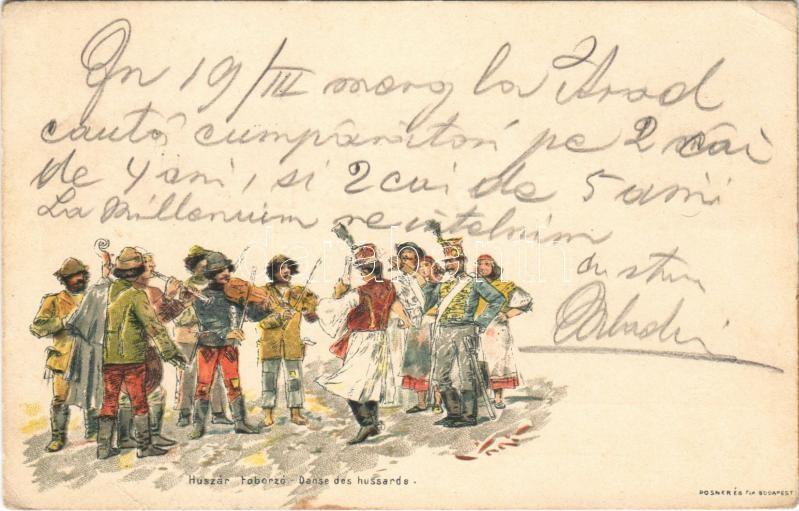 În 19/III merg la Arad
caută cumpărători pe 2 cai
de 4 ani, si 2 cai de 5 ani
La Millenium ne
cu stim
Huszár Toborzó - Danse des hussards.
POSNER ÉS FIA BUDAPEST
darabanth